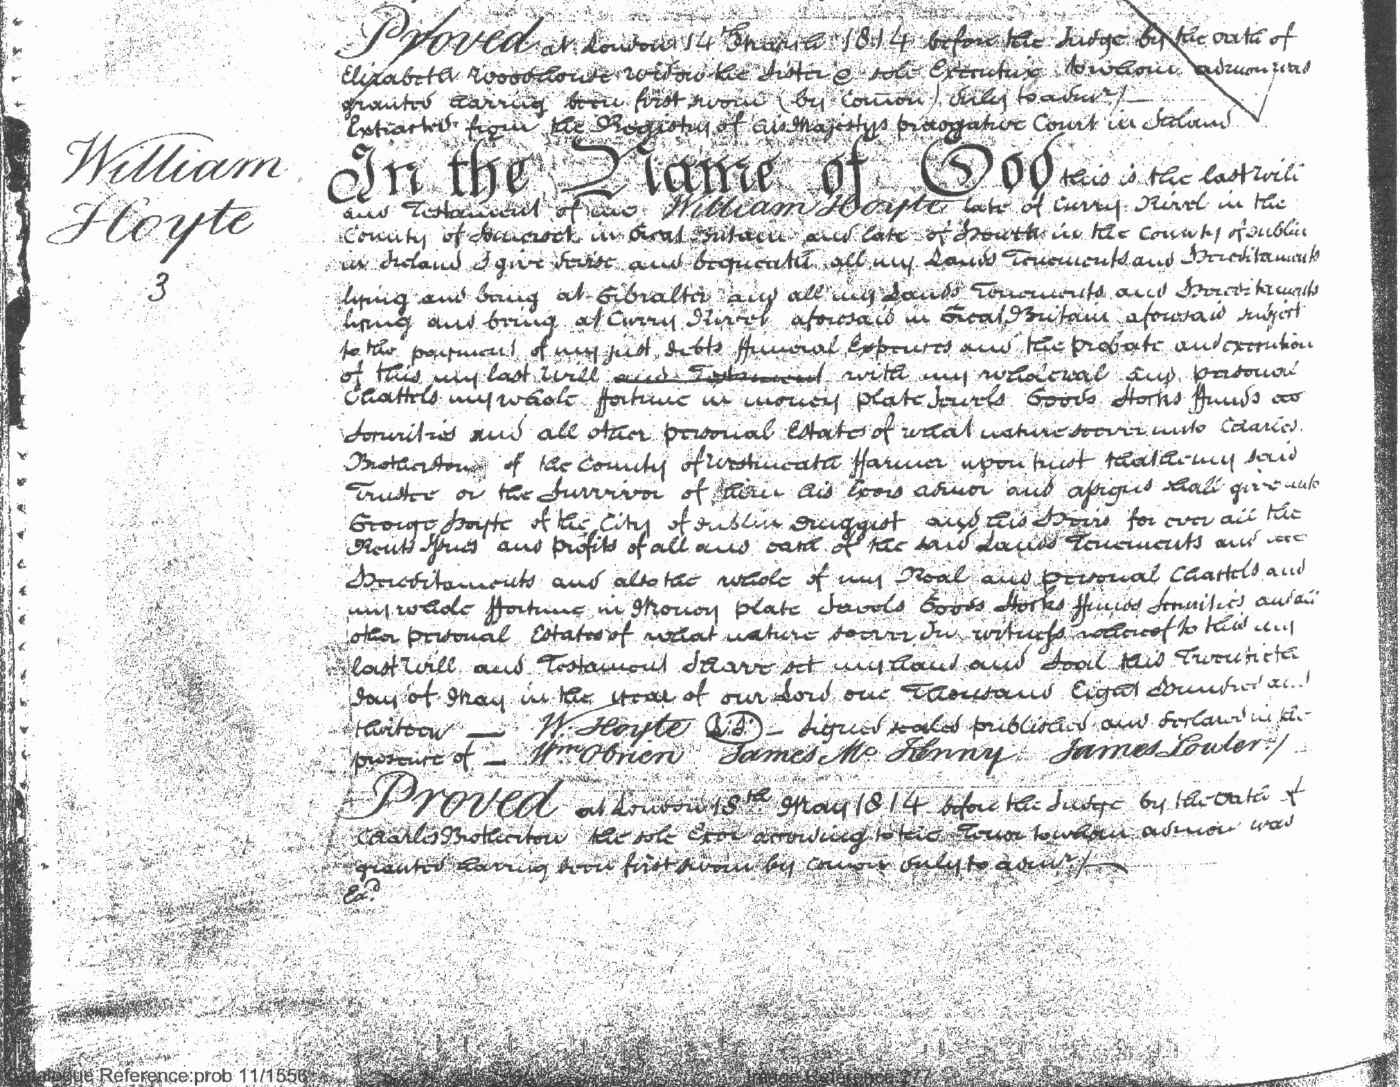 Proved at London 14th March 1814 before the Judge by the Oath of
Elizabeth Woodhouse Widow the Sister & sole Executrix to whom admon was
granted having been first sworn (by Comon) duly to admr/
Extracted from the Registry of his Majestys prerogative Court in Ireland
William
Hoyte
3
In the Name of God this is the last Will
and Testament of me William Hoyte late of Curry Rivel in the
County of Somerset in Great Britain and late of Howth in the County of Dublin
in Ireland I give devise and bequeath all my Lands Tenements and Hereditaments
lying and being at Gibralter and all my Lands Tenements and Hereditaments
lying and being at Curry Rivel aforesaid in Great Britain aforesaid subject
to the payment of my just debts ffuneral Expences and the probate and execution
of this my last Will and Testament with my whole real and personal
Chattels my whole ffortune in money plate Jewels Goods Stocks ffunds
Securities and all other personal Estates of what nature soever unto Charles
Brotherton of the County of Westmeath ffarmer upon trust that he my said
Trustee or the Survivor of them his Exors admor and assigns shall give unto
George Hoyte of the City of Dublin Druggist and his Heirs for ever all the
Rents Issues and profits of all and each of the said Lands Tenements and
Hereditaments and also the whole of my Real and personal Chattels and
my whole ffortune in Money plate Jewels Goods Stocks ffunds Securities and all
other personal Estates of what nature soever In witness whereof to this my
last Will and Testament I have set my hand and Seal this Twentieth
day of May in the year of our Lord one Thousand Eight Hundred and
thirteen — W. Hoyte (LS) – Signed sealed published and declared in the
presence of — Wm OBrien James Mc Henny James Lowler/
Proved at London 18th May 1814 before the Judge by the Oath of
Charles Brotherton the sole Exor according to the Tenor to whom admon was
granted having been first sworn by Comon duly to admr/
Exd
Catalogue Reference:prob 11/1556
Image Reference:277